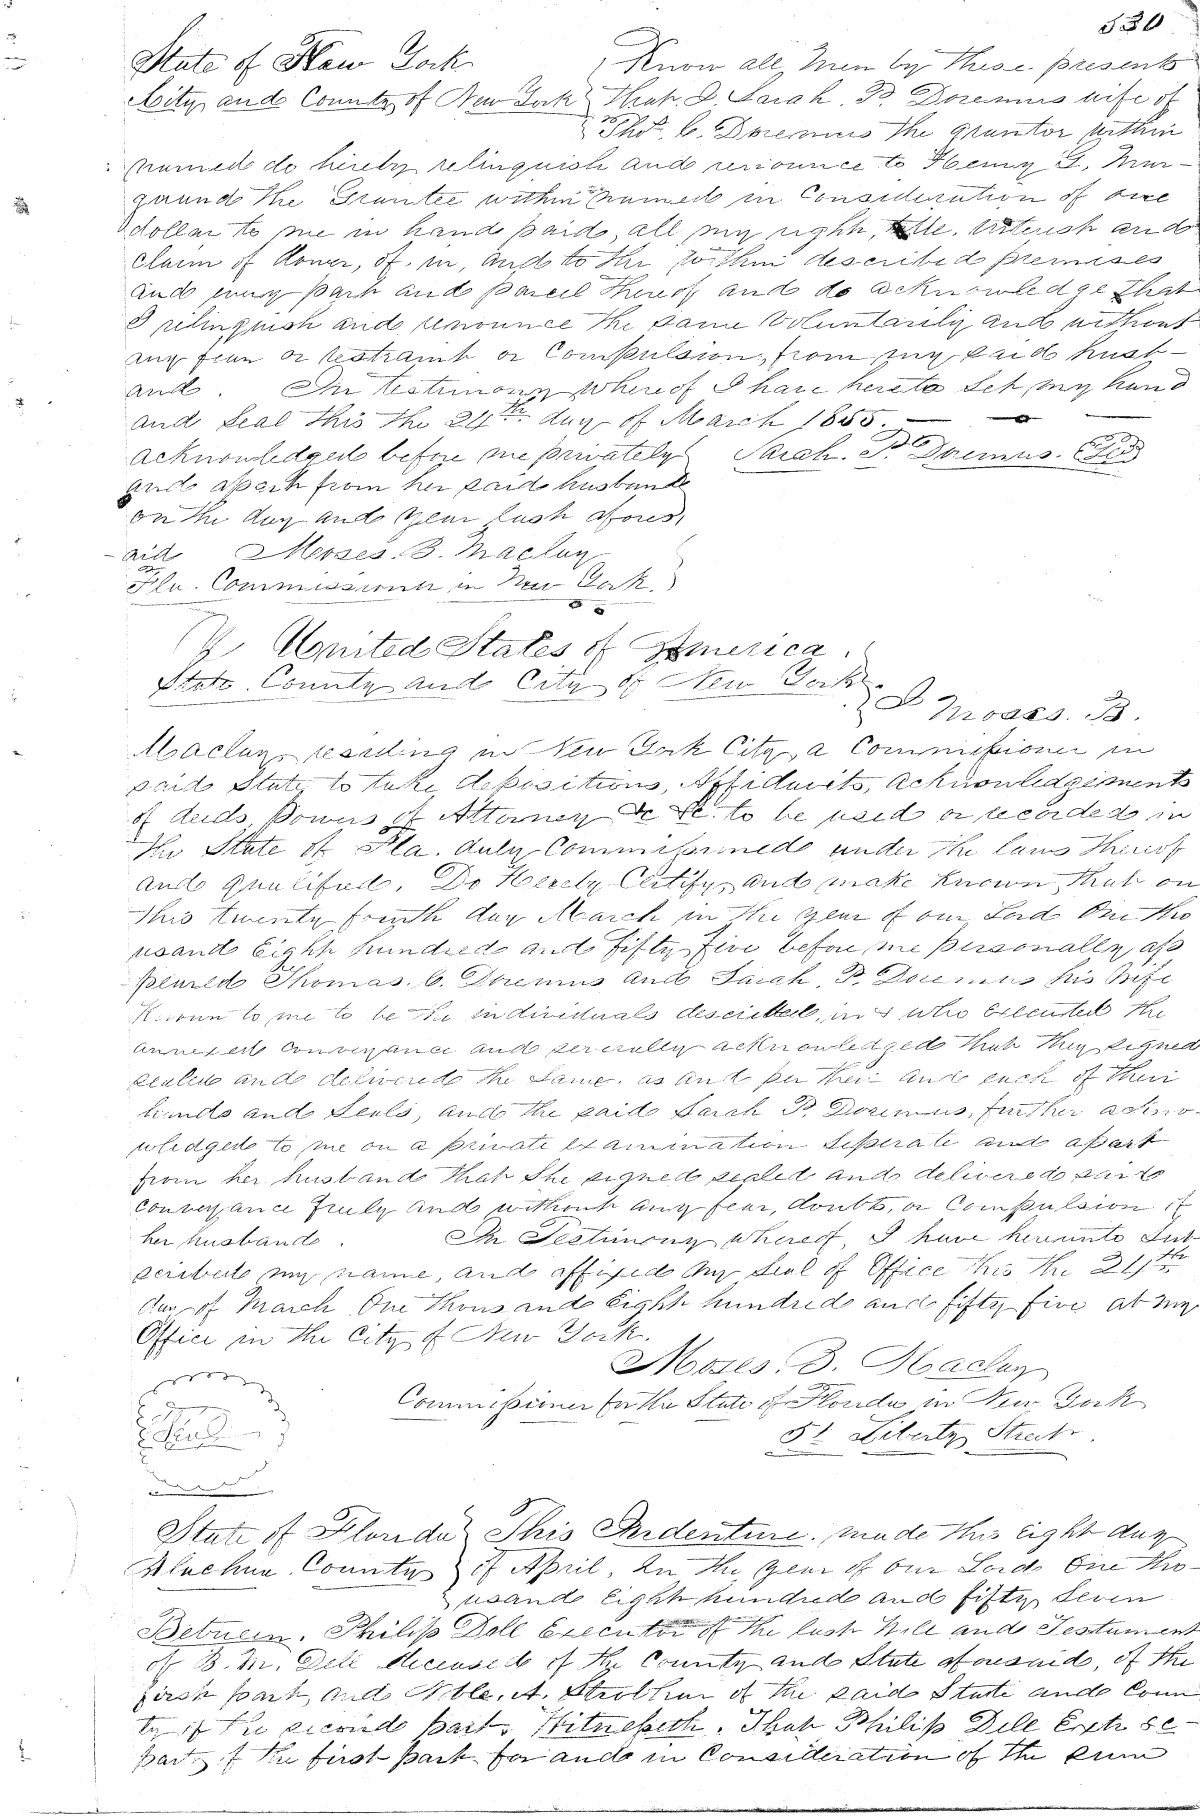 530
State of New York
City and County of New York
Know all Men by these presents
That I, Sarah P. Doremus wife of
Thos. C. Doremus the grantor within
named do hereby relinquish and renounce to Henry G. Mar-
quand the Grantee within named in Consideration of one
dollar to me in hand paid, all my right, title, interest and
claim of dower, of, in, and to the within described premises
and every part and parcel thereof, and do acknowledge that
I relinquish and renounce the same voluntarily and without
any fear or restraint or Compulsion, from my said husb-
and. In testimony whereof I have hereto Set my hand
and Seal this the 24th day of March 1855.
Acknowledged before me privately Sarah. P. Doremus.
and apart from her said husband
on the day and year last afores,
aid Moses. B. Maclay
Fla. Commissioner in New York.
United States of America.
State. County and City of New York
I Moses. B.
Maclay, residing in New York City, a Commissioner in
said State to take depositions, Affidavits, acknowledgements
of deeds, Powers of Attorney &c &c. to be used or recorded in
the State of Fla. duly Commissioned under the laws thereof
and qualified. Do Hereby Certify, and make known, that on
this twenty fourth day March in the year of our Lord One tho
usand Eight hundred and fifty five before me personally ap
peared Thomas. C. Doremus and Sarah. P. Doremus his Wife
Known to me to be the individuals described, in & who executed the
annexed conveyance and severally acknowledged that they signed
sealed and delivered the same. as and per their and each of their
hands and Seals, and the said Sarah P. Doremus, further ackno-
wledged to me on a private examination Seperate and apart
from her husband that She signed sealed and delivered said
conveyance freely and without any fear, doubts, or Compulsion of
her husband. In Testimony whereof, I have hereunto Sub
scribed my name, and affixed my Seal of Office this the 24th
day of March One thousand Eight hundred and fifty five at my
Office in the City of New York.
Moses. B. Maclay
Commissioner for the State of Florida in New York
51 Liberty Street.
Seal
State of Florida
Alachua County
This Indenture. made this eight day
of April, in the year of our Lord One tho-
usand Eight hundred and fifty Seven
Between. Philip Dell Executor of the last Will and Testament
of B. M. Dell deceased of the County and State aforesaid, of the
first part, and Noble. A. Strobhar of the said State and Coun
ty of the second part, Witnesseth. That Philip Dell Extr se-
party of the first part for and in Consideration of the sum